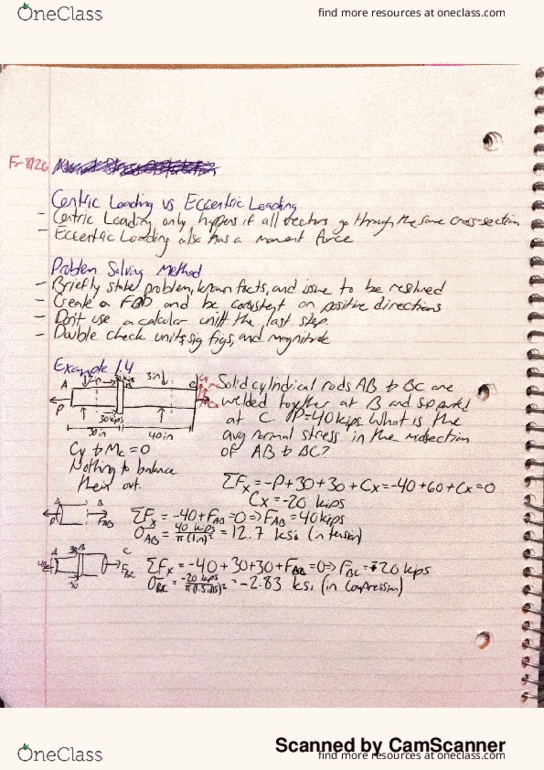 OneClass
find more resources at oneclass.com
Fr 8/26
Centric Loading vs Eccentric Loading
- Centric Loading only happens if all vectors go through the same cross-section
- Eccentric Loading also has a moment force
Problem Solving Method
- Briefly state problem, known facts, and issue to be resolved
- Create a FBD and be consistent on positive directions
- Don't use a calcular until the last step.
- Double check units, sig figs, and magnitude
Example 1.4
A B 3in C
P
30 kips
30in 40in
Solid cylindrical rods AB & BC are
welded together at B and
at C. P=40 kips. What is the
avg normal stress in the midsection
of AB & BC?
Cy & Mc = 0
Nothing to balance
their out.
ΣFx = -P + 30 + 30 + Cx = -40 + 60 + Cx = 0
Cx = -20 kips
FAB
ΣFx = -40 + FAB = 0 => FAB = 40 kips
σAB = 40 kips / π(1in)² = 12.7 ksi (in tension)
A 30 B C
40
30
FBC
ΣFx = -40 + 30 + 30 + FBC = 0 => FBC = -20 kips
σBC = -20 kips / π(1.5in)² = -2.83 ksi (in compression)
Scanned by CamScanner
OneClass
find more resources at oneclass.com